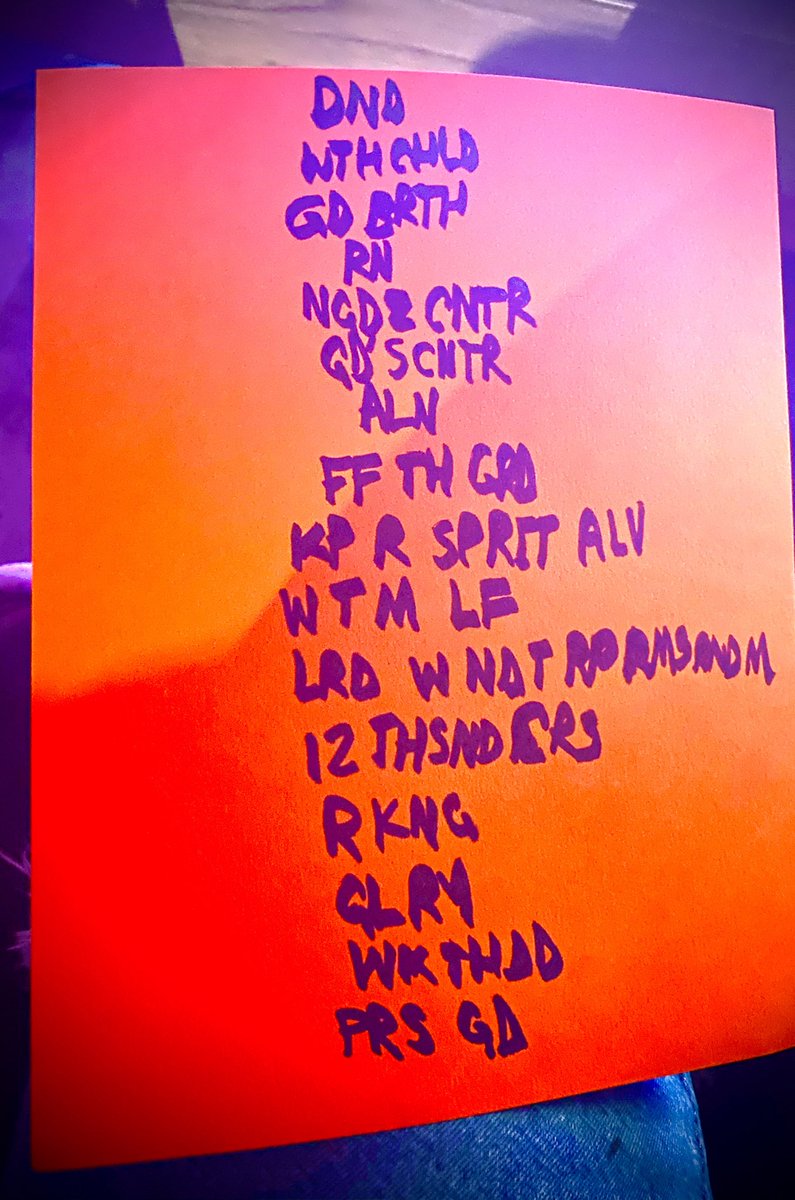 DND
WTH CHLD
GD BRTH
RN
NGDZ CNTR
GD S CNTR
ALN
FF TH GRD
KP R SPRIT ALV
W T M LF
LRD W NDT
12 THSND
R KNG
GLRY
WK TH DD
PRS GD